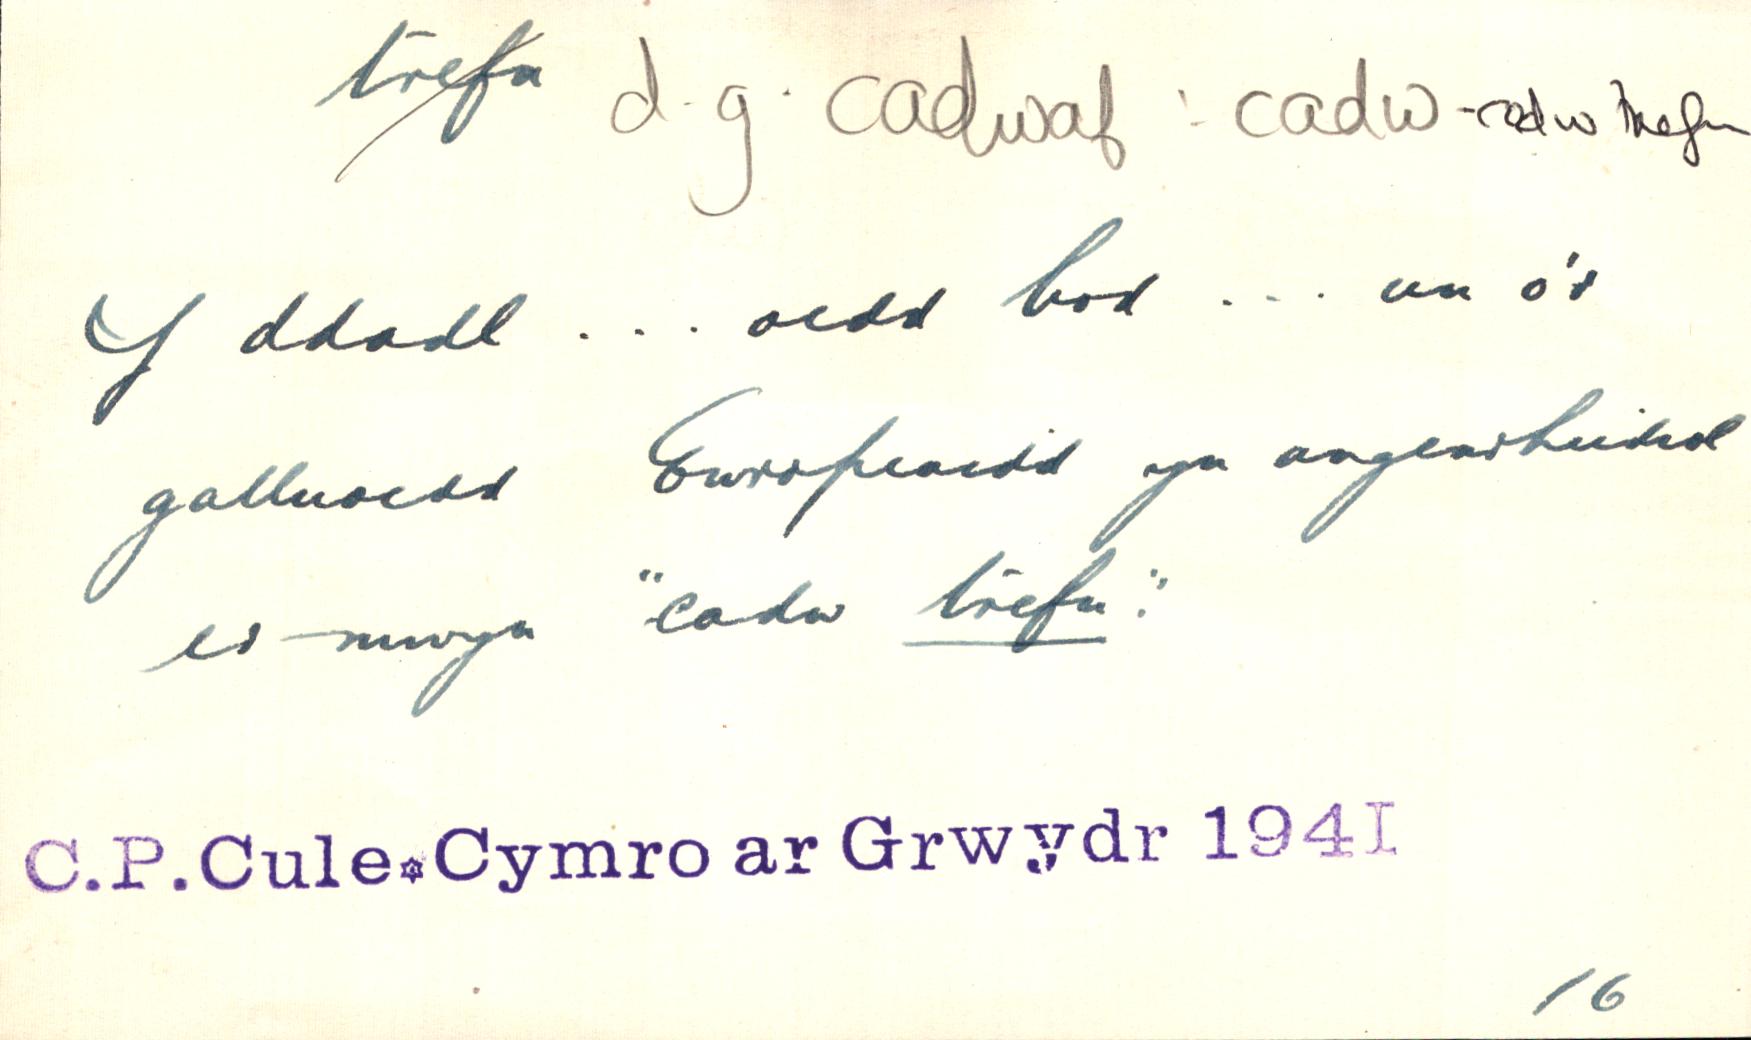 trefn d.g. cadwaf : cadw - cadw trefn
Y ddadl ... oedd bod ... un o'r
galluoedd Ewropeaidd yn angenrheidiol
er mwyn "cadw trefn".
C.P.Cule.Cymro ar Grwydr 1941
16